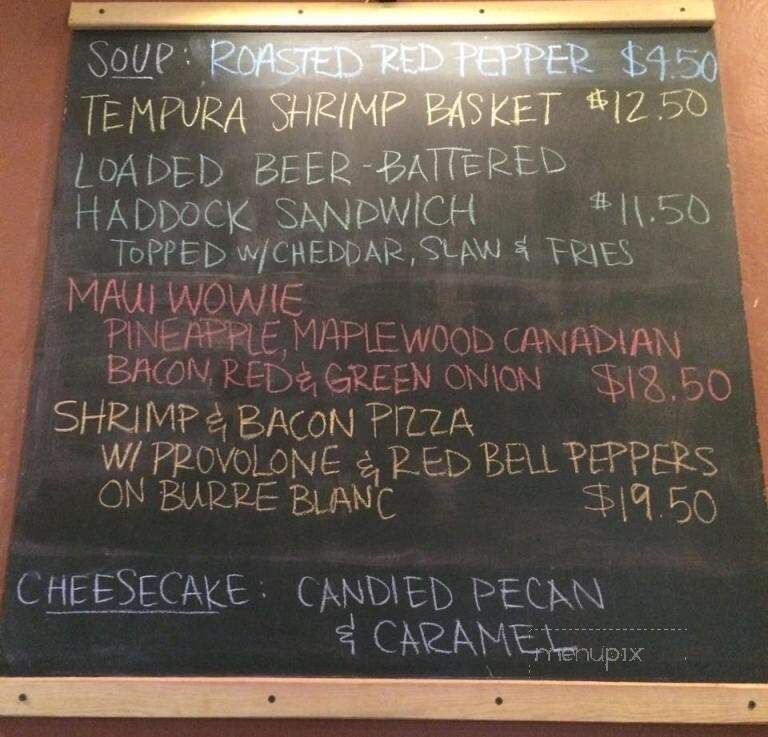 SOUP: ROASTED RED PEPPER $4.50
TEMPURA SHRIMP BASKET $12.50
LOADED BEER-BATTERED
HADDOCK SANDWICH $11.50
TOPPED W/CHEDDAR, SLAW & FRIES
MAUI WOWIE
PINEAPPLE, MAPLEWOOD CANADIAN
BACON, RED & GREEN ONION $18.50
SHRIMP & BACON PIZZA
W/ PROVOLONE & RED BELL PEPPERS
ON BURRE BLANC $19.50
CHEESECAKE: CANDIED PECAN
& CARAMEL
menupix